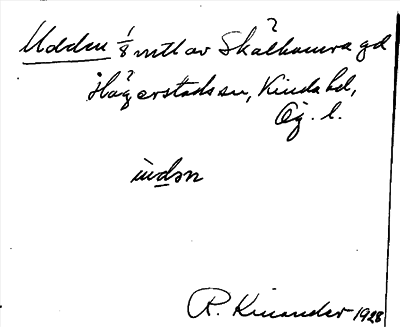 Udden 1/8 mtl av Skälhamra gd
Hägerstads sn, Kinda hd,
Ög. l.
ùdǝn
R. Kinander 1928